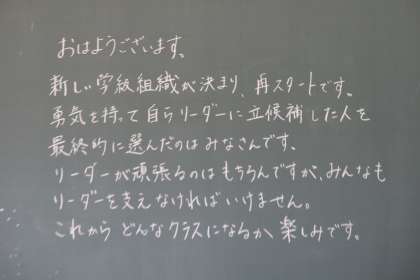 おはようございます。
新しい学級組織が決まり、再スタートです。
勇気を持って自らリーダーに立候補した人を
最終的に選んだのはみなさんです、
リーダーが頑張るのはもちろんですが、みんなも
リーダーを支えなければいけません。
これから どんなクラスになるか 楽しみです。